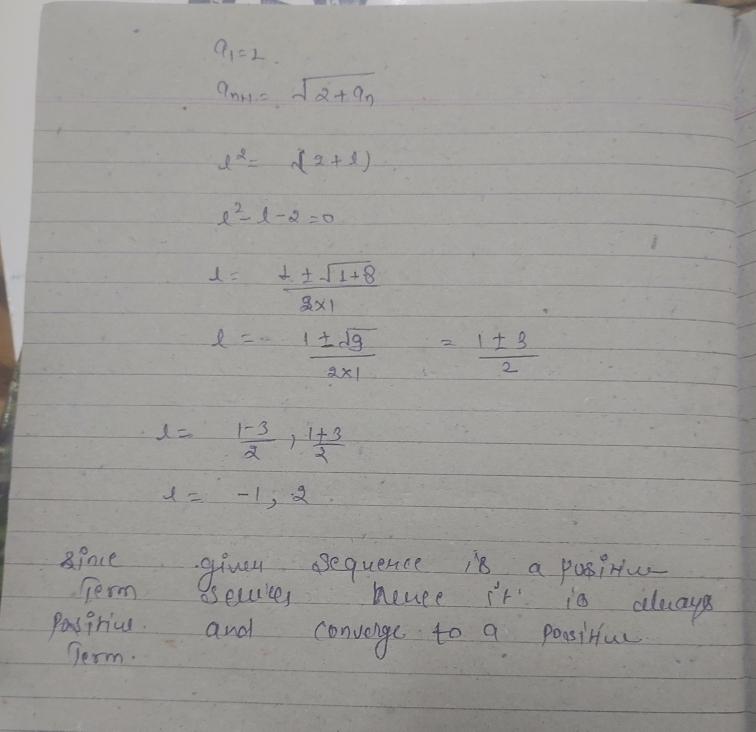 a₁ = 1.
aₙ₊₁ = √(2 + aₙ)
l² = (2 + l)
l² - l - 2 = 0
l = (1 ± √(1+8)) / (2×1)
l = (1 ± √9) / (2×1) = (1 ± 3) / 2
l = (1-3)/2 , (1+3)/2
l = -1, 2.
Since given sequence is a positive
Term hence it is always
Positive. and converge to a positive
Term.